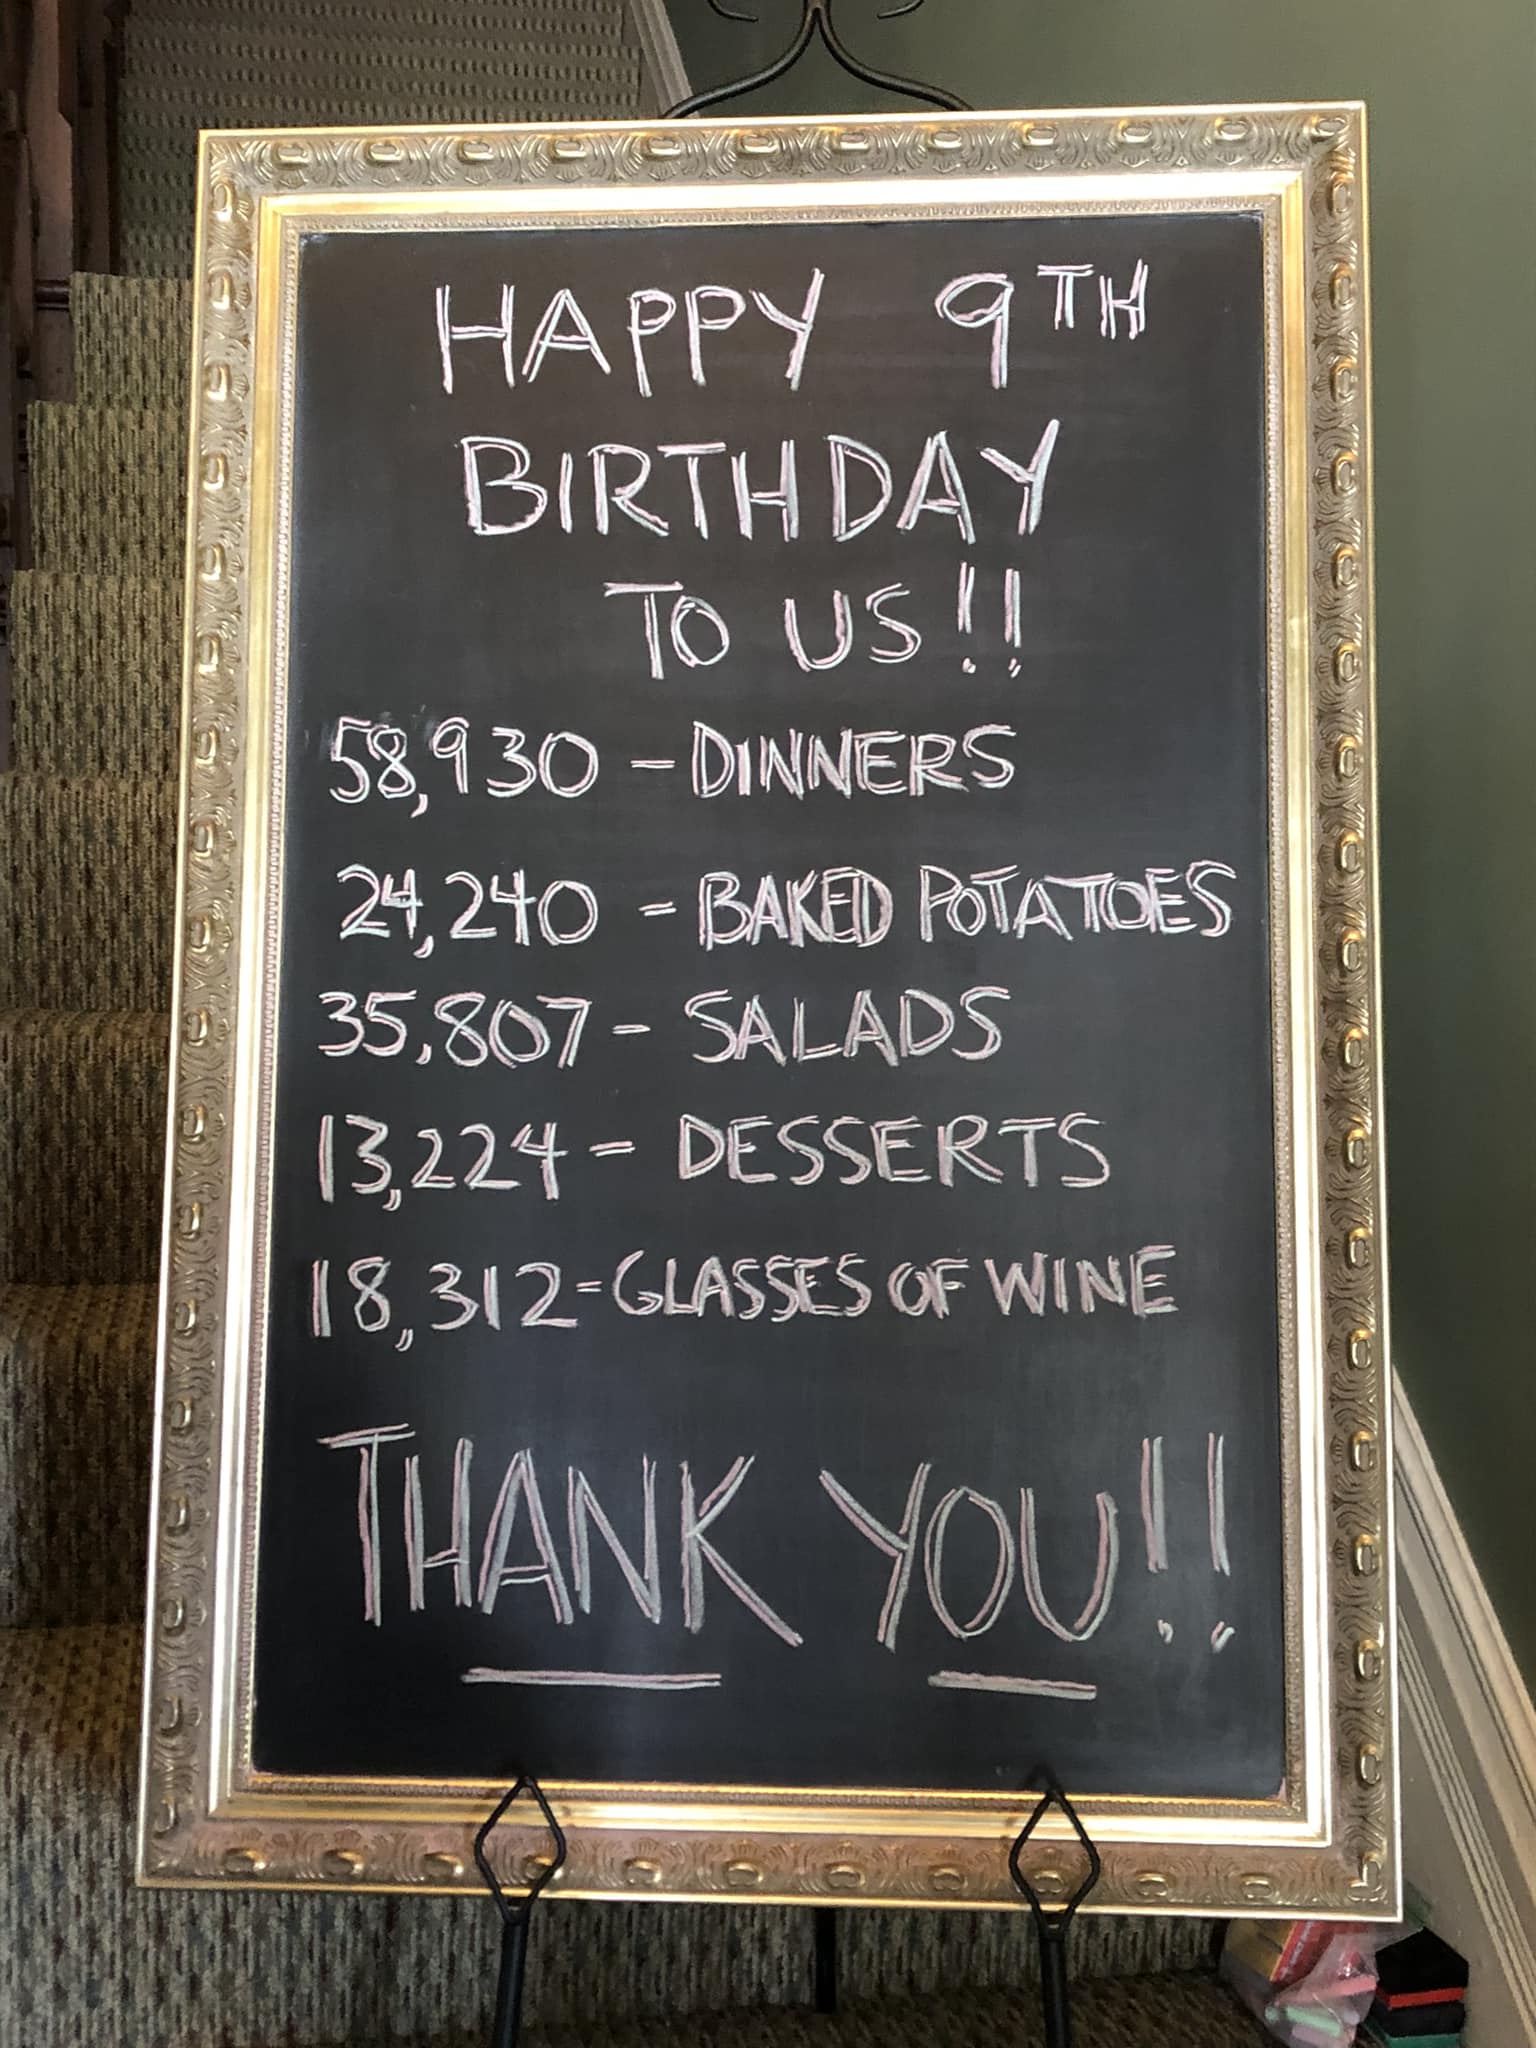 HAPPY 9TH
BIRTHDAY
TO US!!
58,930 - DINNERS
24,240 - BAKED POTATOES
35,807 - SALADS
13,224 - DESSERTS
18,312 - GLASSES OF WINE
THANK YOU!!